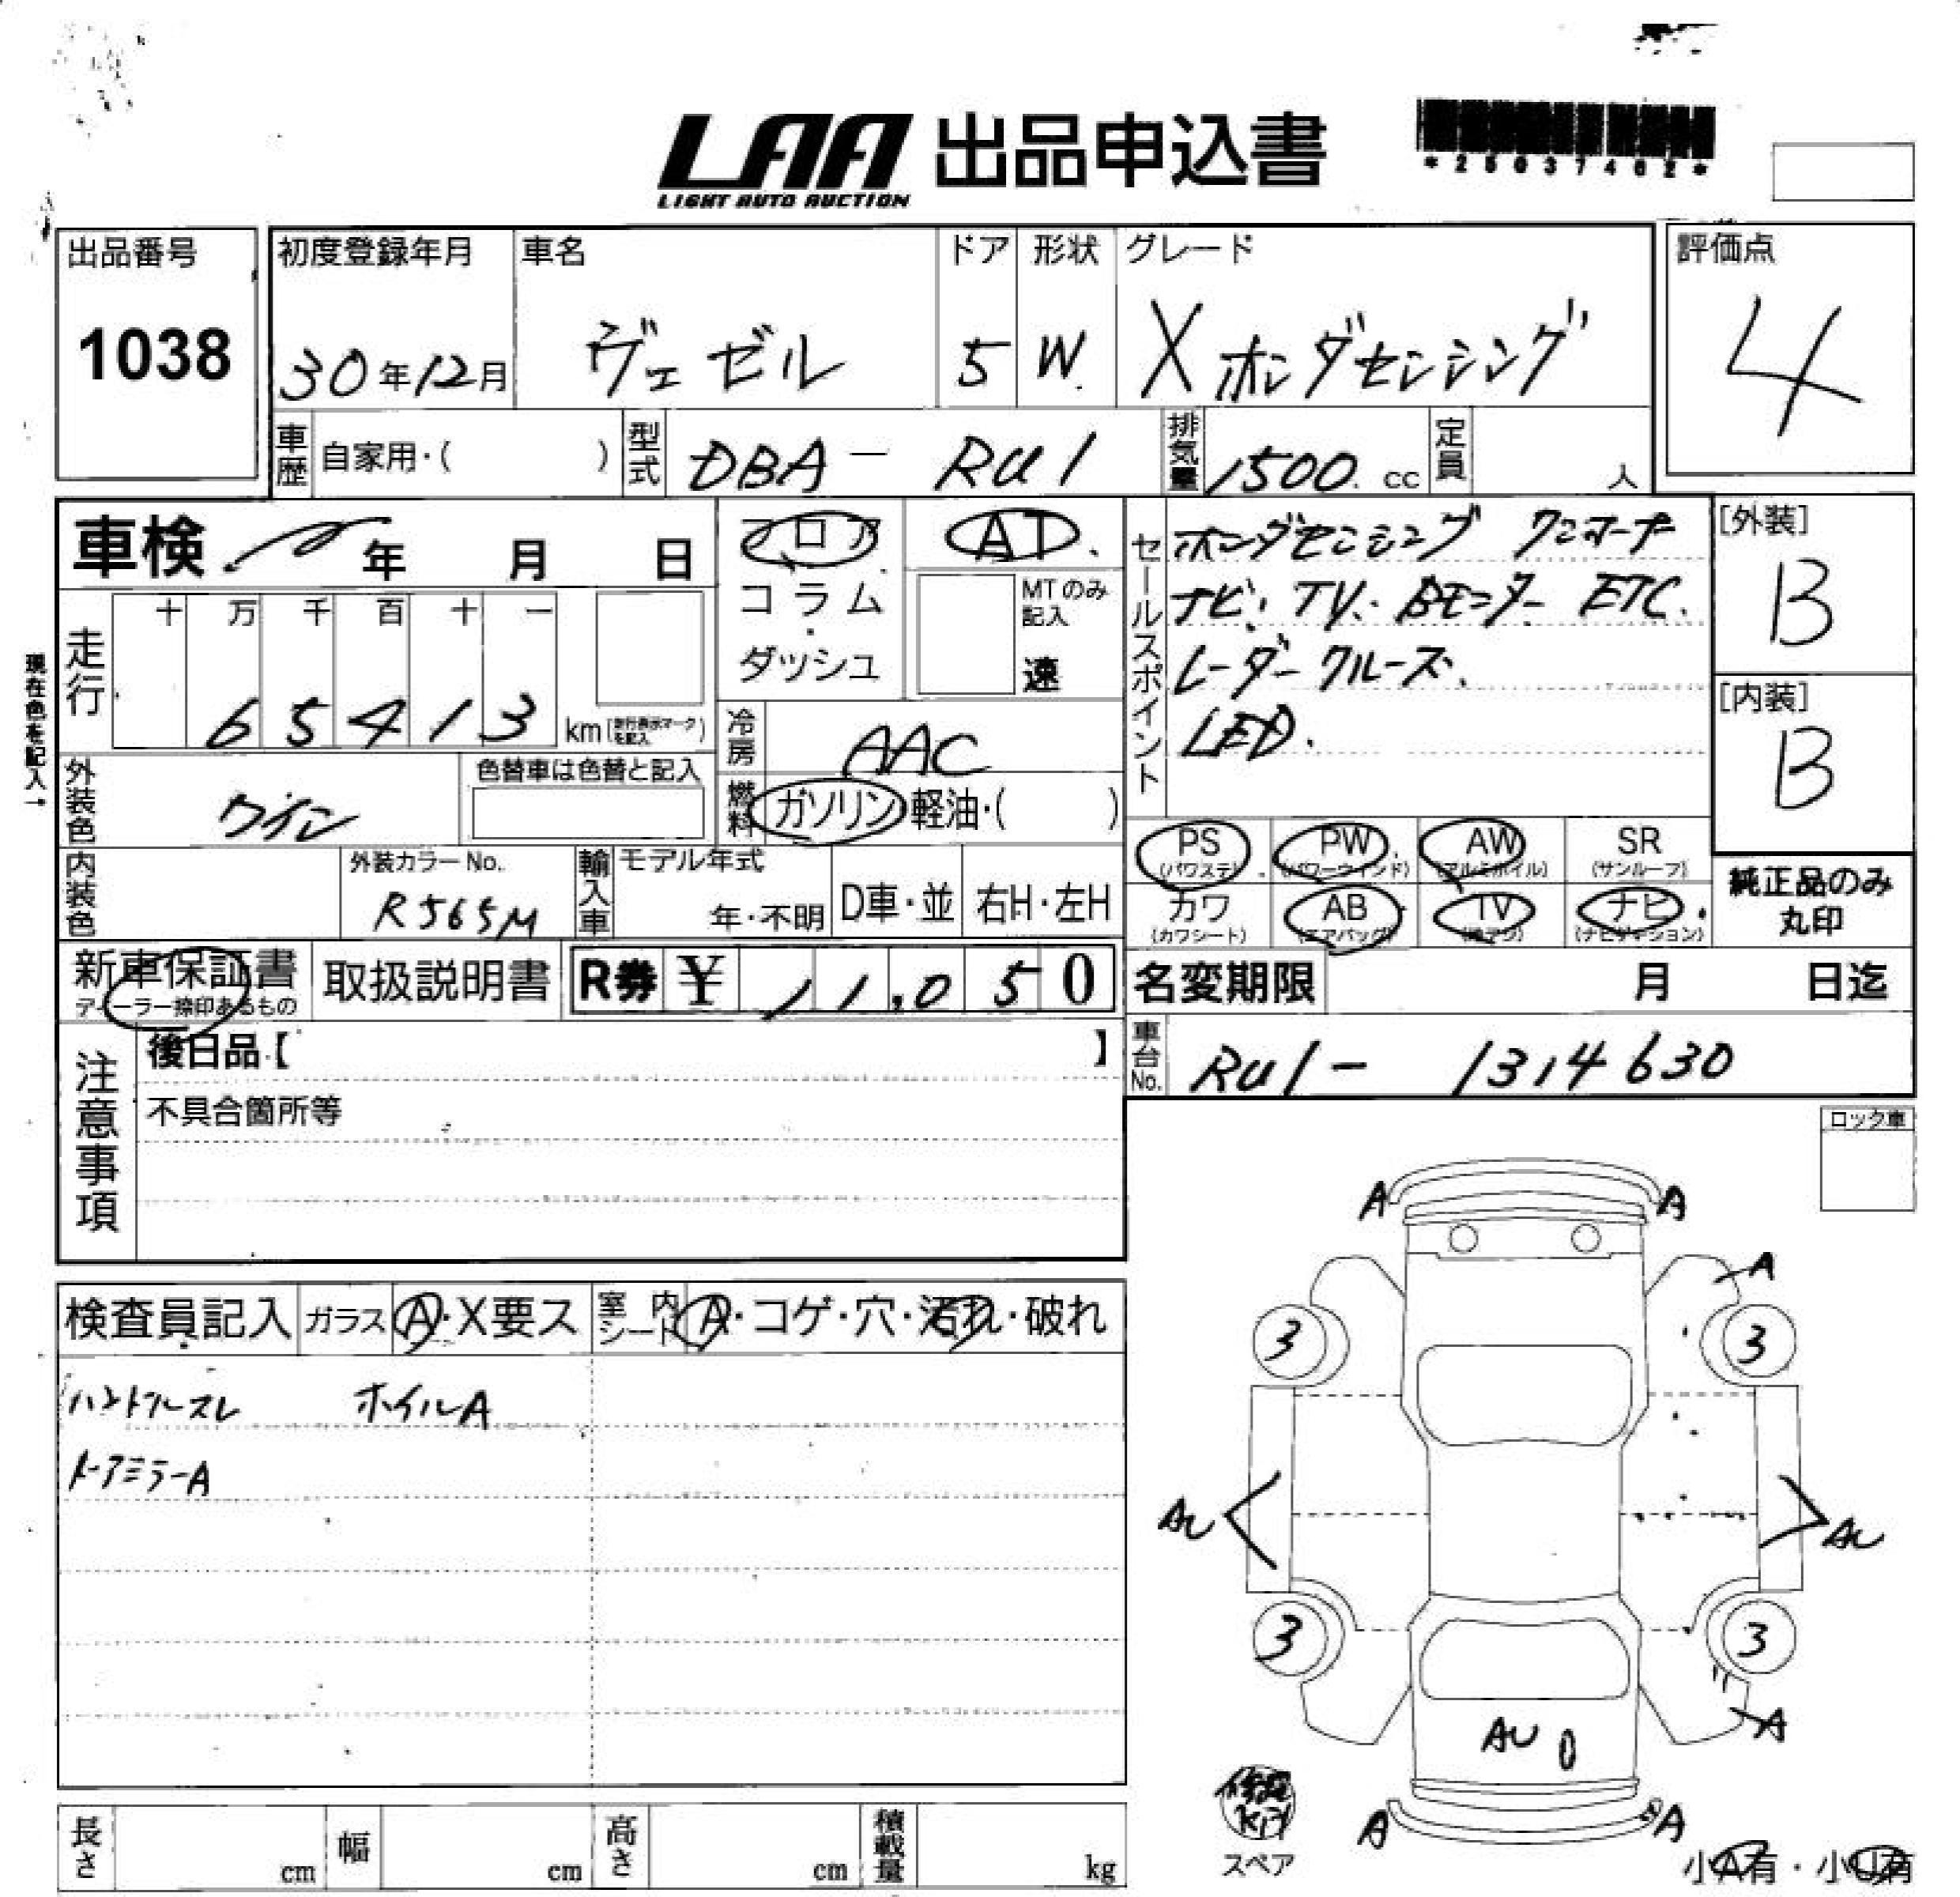 LAA 出品申込書
LIGHT AUTO AUCTION
*25037462*
出品番号
1038
初度登録年月
30年12月
車名
ヴェゼル
ドア
5
形状
W.
グレード
Xホンダセンシング
評価点
4
車歴 自家用・( )
型式 DBA- RU1
排気量 1500. cc
定員 人
車検 年 月 日
フロア
コラム
・
ダッシュ
AT.
MTのみ記入
速
セールスポイント
ホンダセンシング ワンオーナー
ナビ. TV. Bモニター ETC.
レーダークルーズ.
LED.
[外装]
B
[内装]
B
現在色を記入→
走行
十 万 千 百 十 一
6 5 4 1 3 km(走行表示マークを記入)
冷房 AAC
外装色 ワイン
色替車は色替と記入
燃料 ガソリン・軽油・( )
内装色
外装カラーNo.
R565M
輸入車
モデル年式
年・不明
D車・並
右H・左H
PS
(パワステ)
PW
(パワーウインド)
AW
(アルミホイル)
SR
(サンルーフ)
カワ
(カワシート)
AB
(エアバッグ)
TV
(地デジ)
ナビ
(ナビゲーション)
純正品のみ
丸印
新車保証書
ディーラー捺印あるもの
取扱説明書
R券 ¥ 11,050
名変期限 月 日迄
車台No. RU1- 1314630
注意事項
後日品【 】
不具合箇所等
ロック車
検査員記入
ガラス A・X要ス
室内シート A・コゲ・穴・汚れ・破れ
ハンドルスレ ホイルA
ドアミラーA
A A
A
3 3
AU AU
3 3
A
AU
A A
修理
Kit
スペア
小A有・小U有
長さ cm
幅 cm
高さ cm
積載量 kg